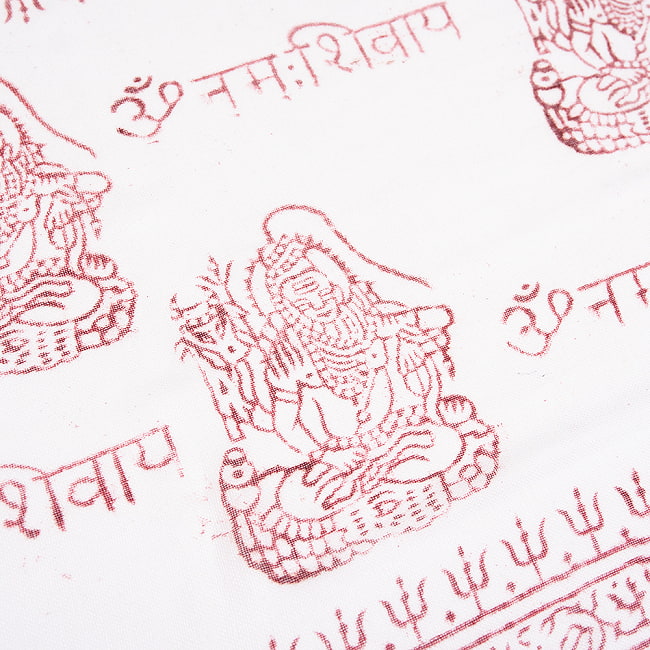 ॐ नमःशिवाय
ॐ नम
शिवाय